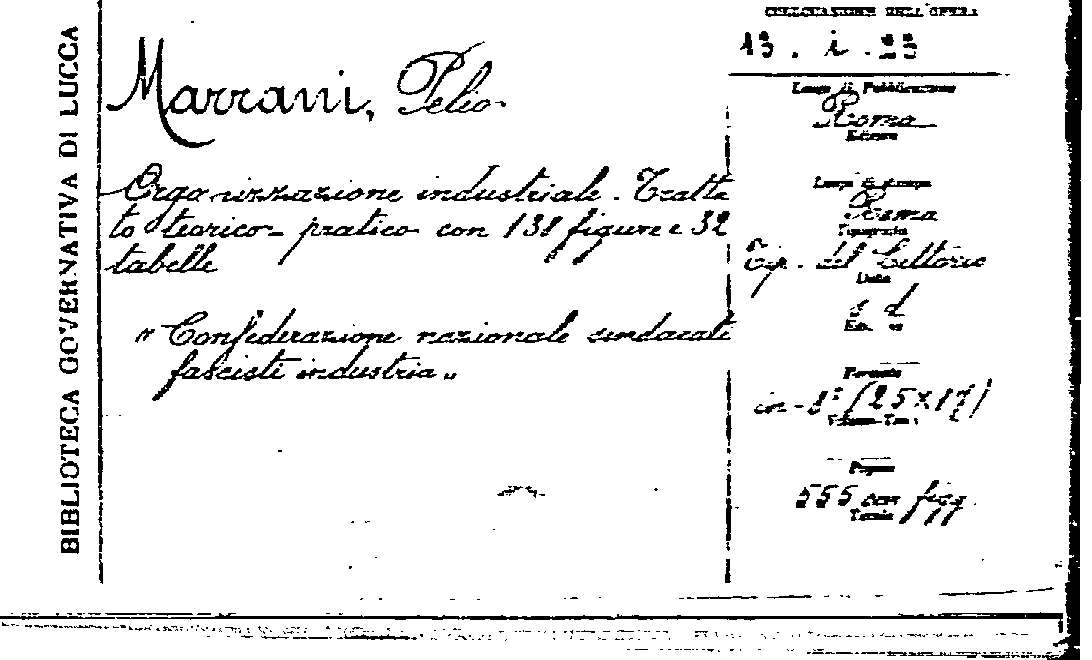 BIBLIOTECA GOVERNATIVA DI LUCCA
Marrani, Pelio
Organizzazione industriale. Tratta
to teorico-pratico con 131 figure e 32
tabelle
"Confederazione nazionale sindacati
fascisti industria"
COLLOCAZIONE DELL'OPERA
13. i.
Luogo di Pubblicazione
Roma
Editore
Luogo di stampa
Roma
Tipografia
Tip. del Littorio
Data
s d
Formato
in-8° (25x17)
Pagine
555 con figg
Tavole